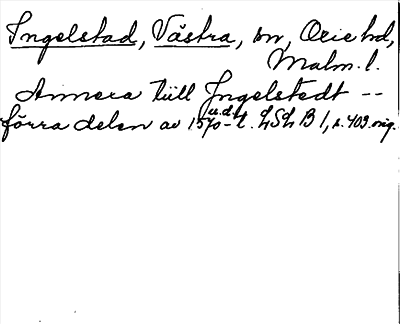 Ingelstad, Västra, sn, Oxie hd,
Malm. l.
Annexa tiill Jngelstedt --
u.d.
förra delen av 1570-t. LSL B 1, s. 409. orig.